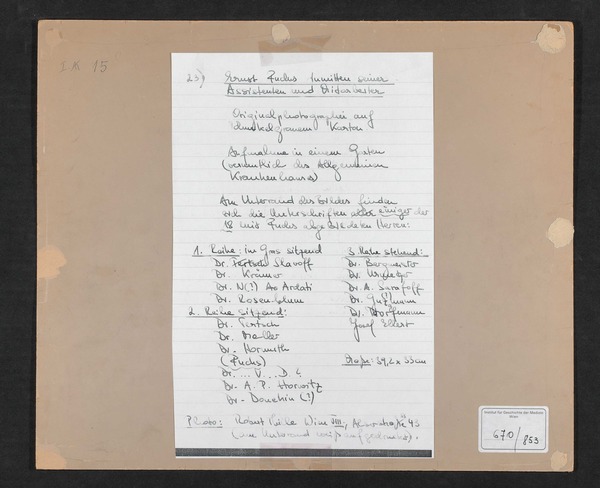 I N 15
23) Ernst Fuchs inmitten seiner
Assistenten und Mitarbeiter
Originalphotographie auf
dunkelgrauem Karton
Aufnahme in einem Garten
(vermutlich des Allgemeinen
Krankenhauses)
Am Unterrand des Bildes finden
sich die Unterschriften aller einiger der
18 mit Fuchs abgebildeten Herren:
1. Reihe: im Gras sitzend
Dr. Fertsch Skavoff
Dr. Krämer
Dr. N(?) Ardati
Dr. Rosenblum
2. Reihe sitzend:
Dr.
Dr. Meller
Dr.
(Fuchs)
Dr. ... V... D.
Dr. A. P. Horwitz
Dr. Douchin (?)
3. Reihe stehend:
Dr. Bergmeister
Dr.
Dr. A. Sarafoff
Dr. Gutmann
Dr. Hoffmann
Josef Ebert
Größe: 39,2 x 33 cm
Photo: Robert Wien VIII, Alserstraße 43
(am Unterrand weiß aufgedruckt).
Institut für Geschichte der Medizin
Wien
670/853